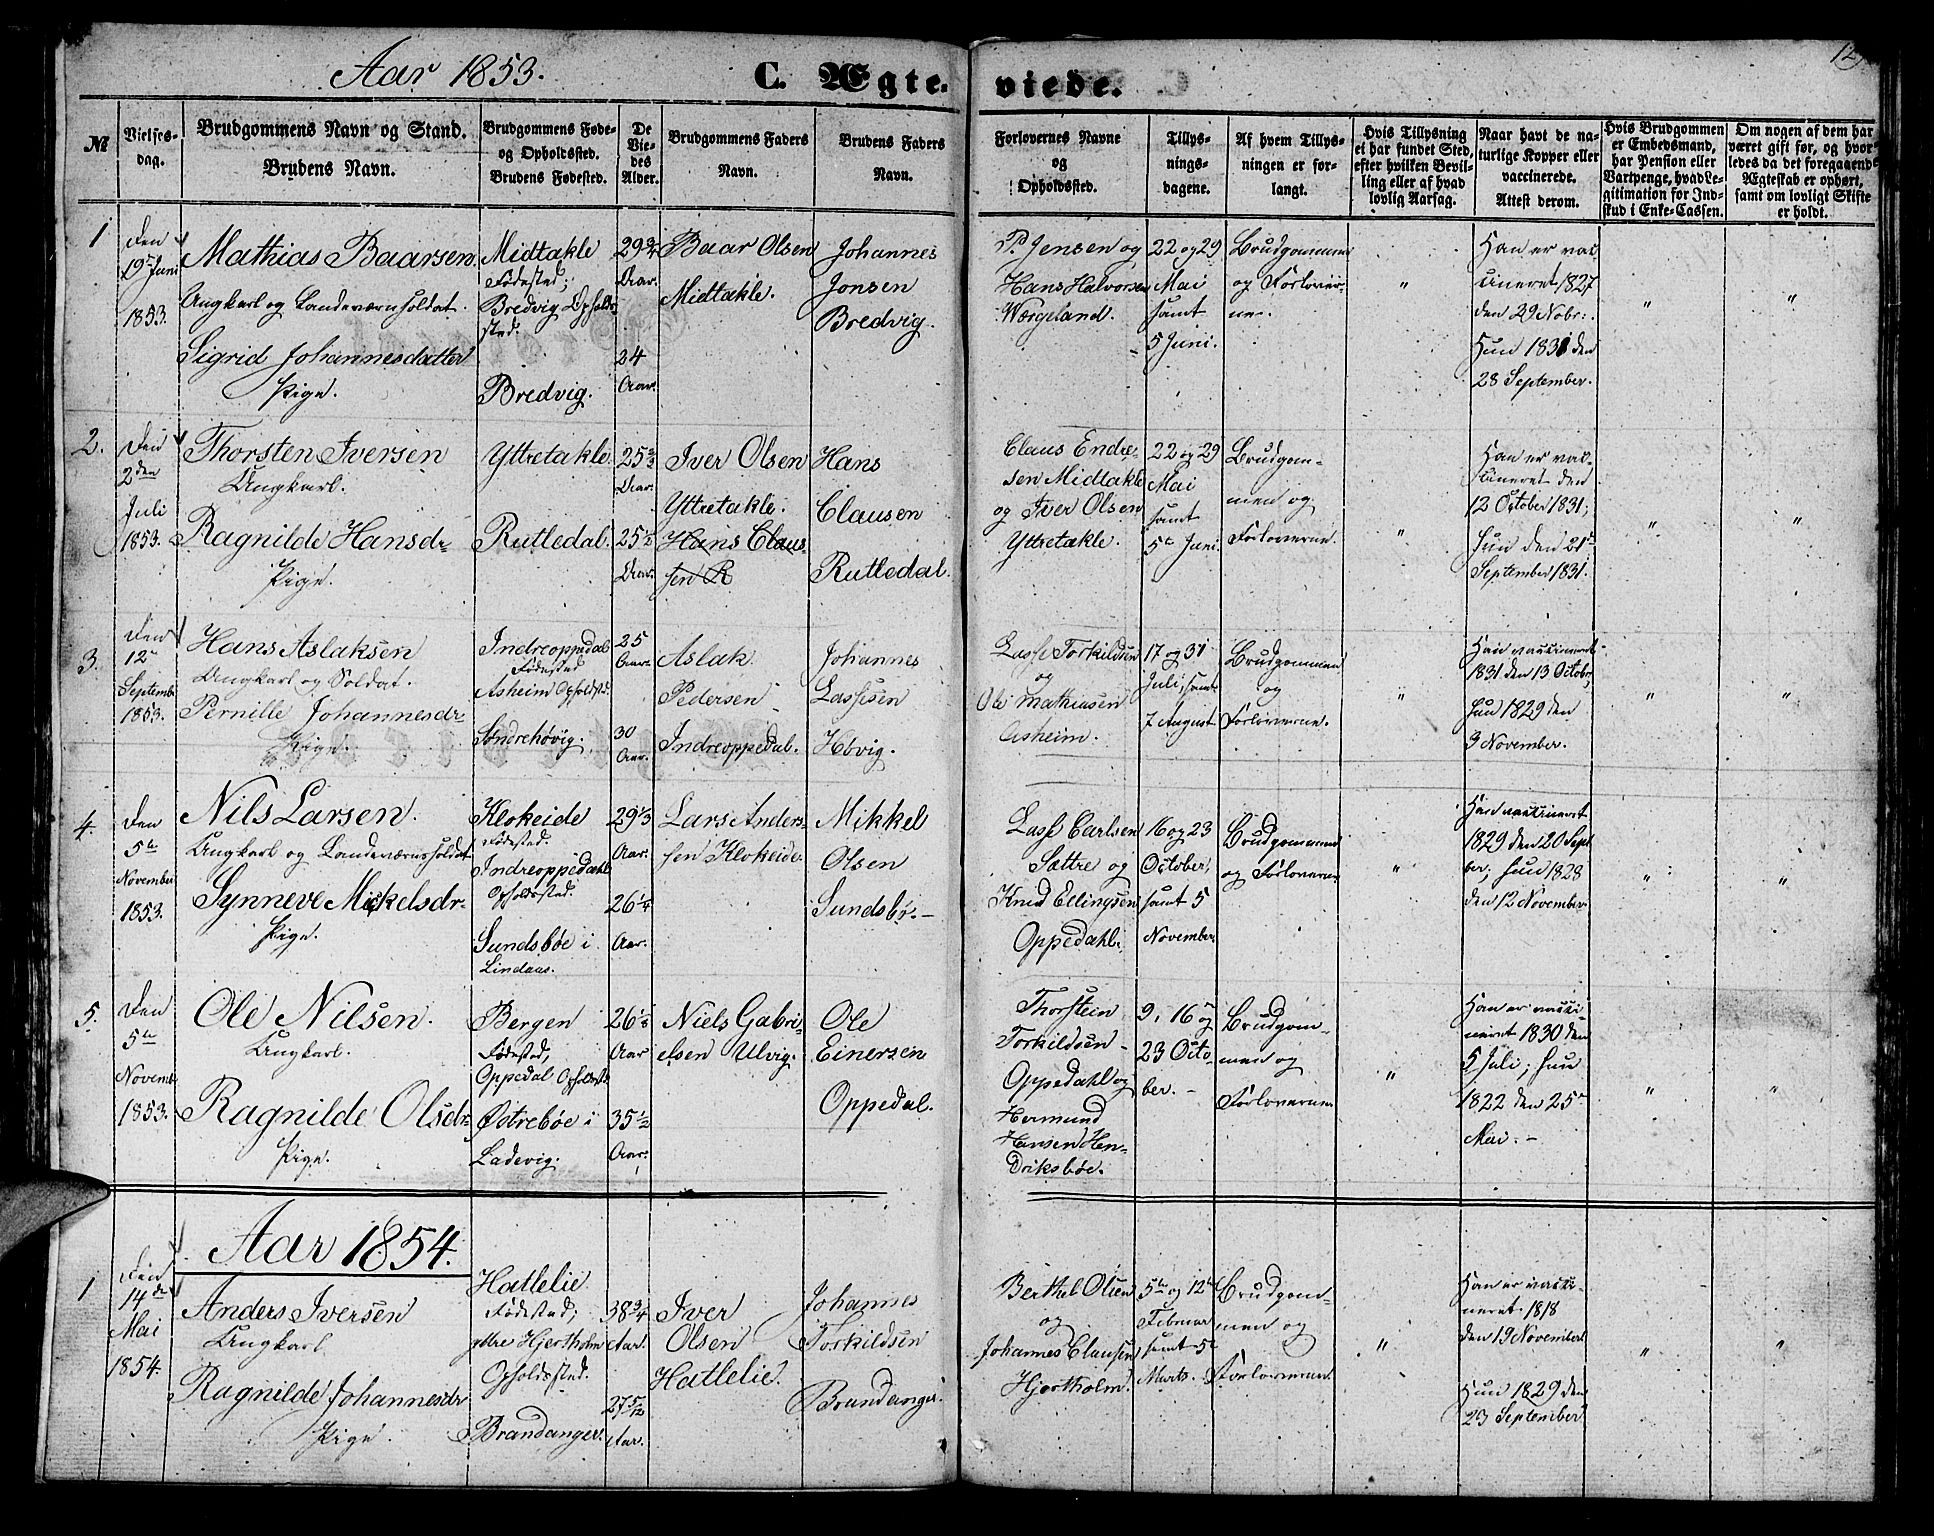 Aar 1853.
C. Ægte-
viede.
№
Vielses-
dag.
Brudgommens Navn og Stand.
Brudens Navn.
Brudgommens Føde-
og Opholdssted.
Brudens Fødested.
De
Vie-
des
Alder.
Brudgommens Faders
Navn.
Brudens Faders
Navn.
Forlovernes Navne
og
Opholdssted.
Tillys-
nings-
dagene.
Af hvem Tillys-
ningen er for-
langt.
Hvis Tillysning
ei har fundet Sted,
efter hvilken Bevil-
ling eller af hvad
lovlig Aarsag.
Naar havt de na-
turlige Kopper eller
vaccinerede.
Attest derom.
Hvis Brudgommen
er Embedsmand,
har Pension eller
Vartpenge, hvad Le-
gitimation for Ind-
skud i Enke-Cassen.
Om nogen af dem har
været gift før, og hvor-
ledes da det foregaaende
Ægteskab er ophørt,
samt om lovligt Skifte
er holdt.
1
Den
19de Juni
1853.
Mathias Baarsen
Ungkarl og Landeværnsoldat.
Sigrid Johannesdatter
Pige.
Midtakle
Fødested;
Bredvig Ophold-
sted.
Bredvig.
Aar.
24
Aar.
Baar Olsen
Midtakle.
Johannes
Jonsen
Bredvig.
P. Jensen og
Hans Halvorsen
Wærgeland.
22 og 29
Mai
samt
5 Juni.
Brudgommen
og Forlover-
ne.
"
Han er vac-
cineret 1827
den 29 Nobr.
Hun 1831 den
28 September.
"
"
2.
Den
2den
Juli
1853.
Thorsten Iversen
Ungkarl.
Ragnilde Hansdr
Pige.
Yttretakle
Rutledal.
Aar.
25½
Aar.
Iver Olsen
Yttretakle.
Hans Claus-
sen R
Hans
Clausen
Rutledal.
Claus Endre-
sen Midtakle
og Iver Olsen
Yttretakle.
22 og 29
Mai
samt
5te Juni.
Brudgom-
men og
Forloverne.
"
Han er vac-
cineret den
12 October 1831;
Hun den 21de
September 1831.
"
"
3.
Den
12te
Septembr
1853.
Hans Aslaksen
Ungkarl og Soldat.
Pernille Johannesdr
Pige.
Indreoppedal
Fødested
Asheim Opholdsted.
Søndrehövig.
25
Aar.
30
Aar.
Aslak
Pedersen
Indreoppedal.
Johannes
Lassesen
Hövig.
Lasse Torkildsen
og
Ole Mathiasen
Asheim.
17 og 31
Juli, samt
7 August
Brudgommen
og
Forloverne.
"
Han vaccineret
1831 den 13 Octobr,
Hun 1829 den
3 November.
"
"
4.
Den
5te
November
1853.
Nils Larsen.
Ungkarl og Landeværnsoldat
Synneve Mickelsdr
Pige.
Klokeide
Fødested.
Indreoppedahl
Opholdssted.
Sundsböe i
Lindaas.
29⅓
Aar.
26¼
Aar.
Lars Anders-
sen Klokeide.
Mikkel
Olsen
Sundsbö.
Lasse Carlsen
Sættre og
Knud Ellingsen
Oppedahl.
16 og 23
October,
samt 5
November.
Brudgommen
og Forloverne
"
Han vaccineret
1829 den 20 Sept
ber; Hun 1828
den 12 November
"
"
5.
Den
5te
Novembr
1853.
Ole Nilsen.
Ungkarl.
Ragnilde Olsdr
Pige.
Bergen
Fødested,
Oppedal Opholdsted
Østrebøe i
Ladevig.
Aar
35½
Aar.
Niels Gabri-
elsen Ulvig.
Ole
Einersen
Oppedal.
Thorstein
Torkildsen
Oppedahl og
Hermund
Hansen Hen-
driksbøe.
9, 16 og
23 Octo-
ber.
Brudgom-
men og
Forloverne
"
Han er vacci-
neret 1830 den
5 Juli; Hun
1822 den 25de
Mai.
"
"
Aar 1854.
1
Den
14de
Mai
1854.
Anders Iversen
Ungkarl
Ragnilde Johannesdr
Pige.
Hatlelie
Fødested;
ydre Hjortholm
Opholdssted.
Brandanger.
38¾
Aar.
27 5/12
Aar.
Iver
Olsen
Hatlelie.
Johannes
Torkildsen
Brandanger.
Berthel Olsen
og
Johannes Clausen
Hjortholm.
5te og 12te
Februar
samt 5te
Marts.
Brudgom-
men og
Forloverne.
"
Han er vacci-
neret 1818
den 19 November
Hun 1829 den
23 September
"
"